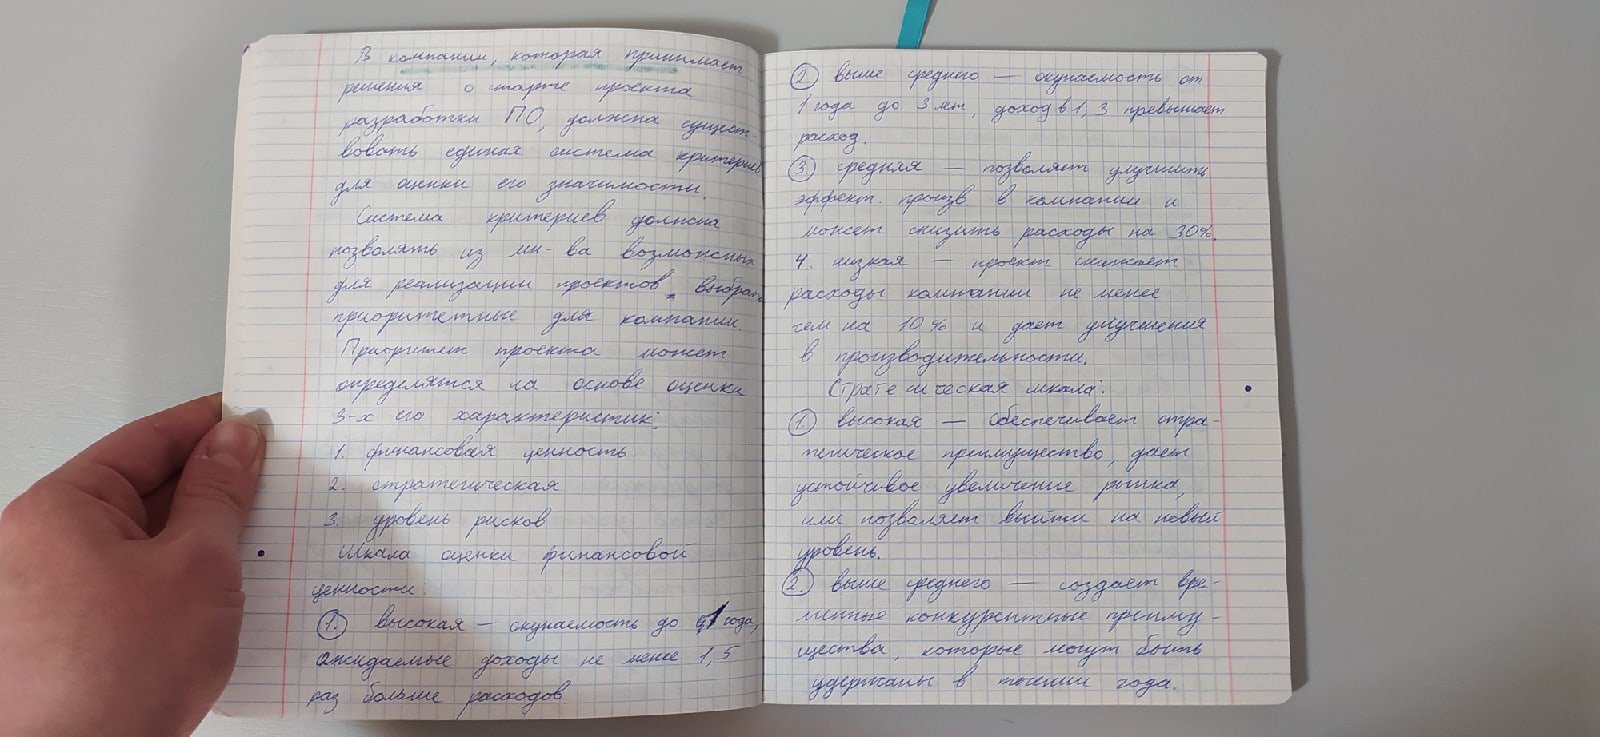 В компании, которая принимает
решения о старте проекта
разработки ПО, должна сущест-
вовать единая система критериев
для оценки его значимости.
Система критериев должна
позволять из мн-ва возможных
для реализации проектов, выбрать
приоритетные для компании.
Приоритет проекта может
определятся на основе оценки
3-х его характеристик:
1. финансовая ценность
2. стратегическая
3. уровень рисков
• Шкала оценки финансовой
ценности:
1. высокая — окупаемость до 1 года,
ожидаемые доходы не менее 1,5
раз больше расходов.
2 выше среднего — окупаемость от
1 года до 3 лет, доход в 1,3 превышает
расход.
3 средняя — позволяет улучшить
эффект. произв. в компании и
может снизить расходы на 30%.
4. низкая — проект снижает
расходы компании не менее
чем на 10% и дает улучшения
в производительности.
Стратегическая шкала: •
1. высокая — обеспечивает стра-
тегическое преимущество, дает
устойчивое увеличение рынка,
или позволяет выйти на новый
уровень.
2. выше среднего — создает вре-
менные конкурентные преиму-
щества, которые могут быть
удержаны в течении года.